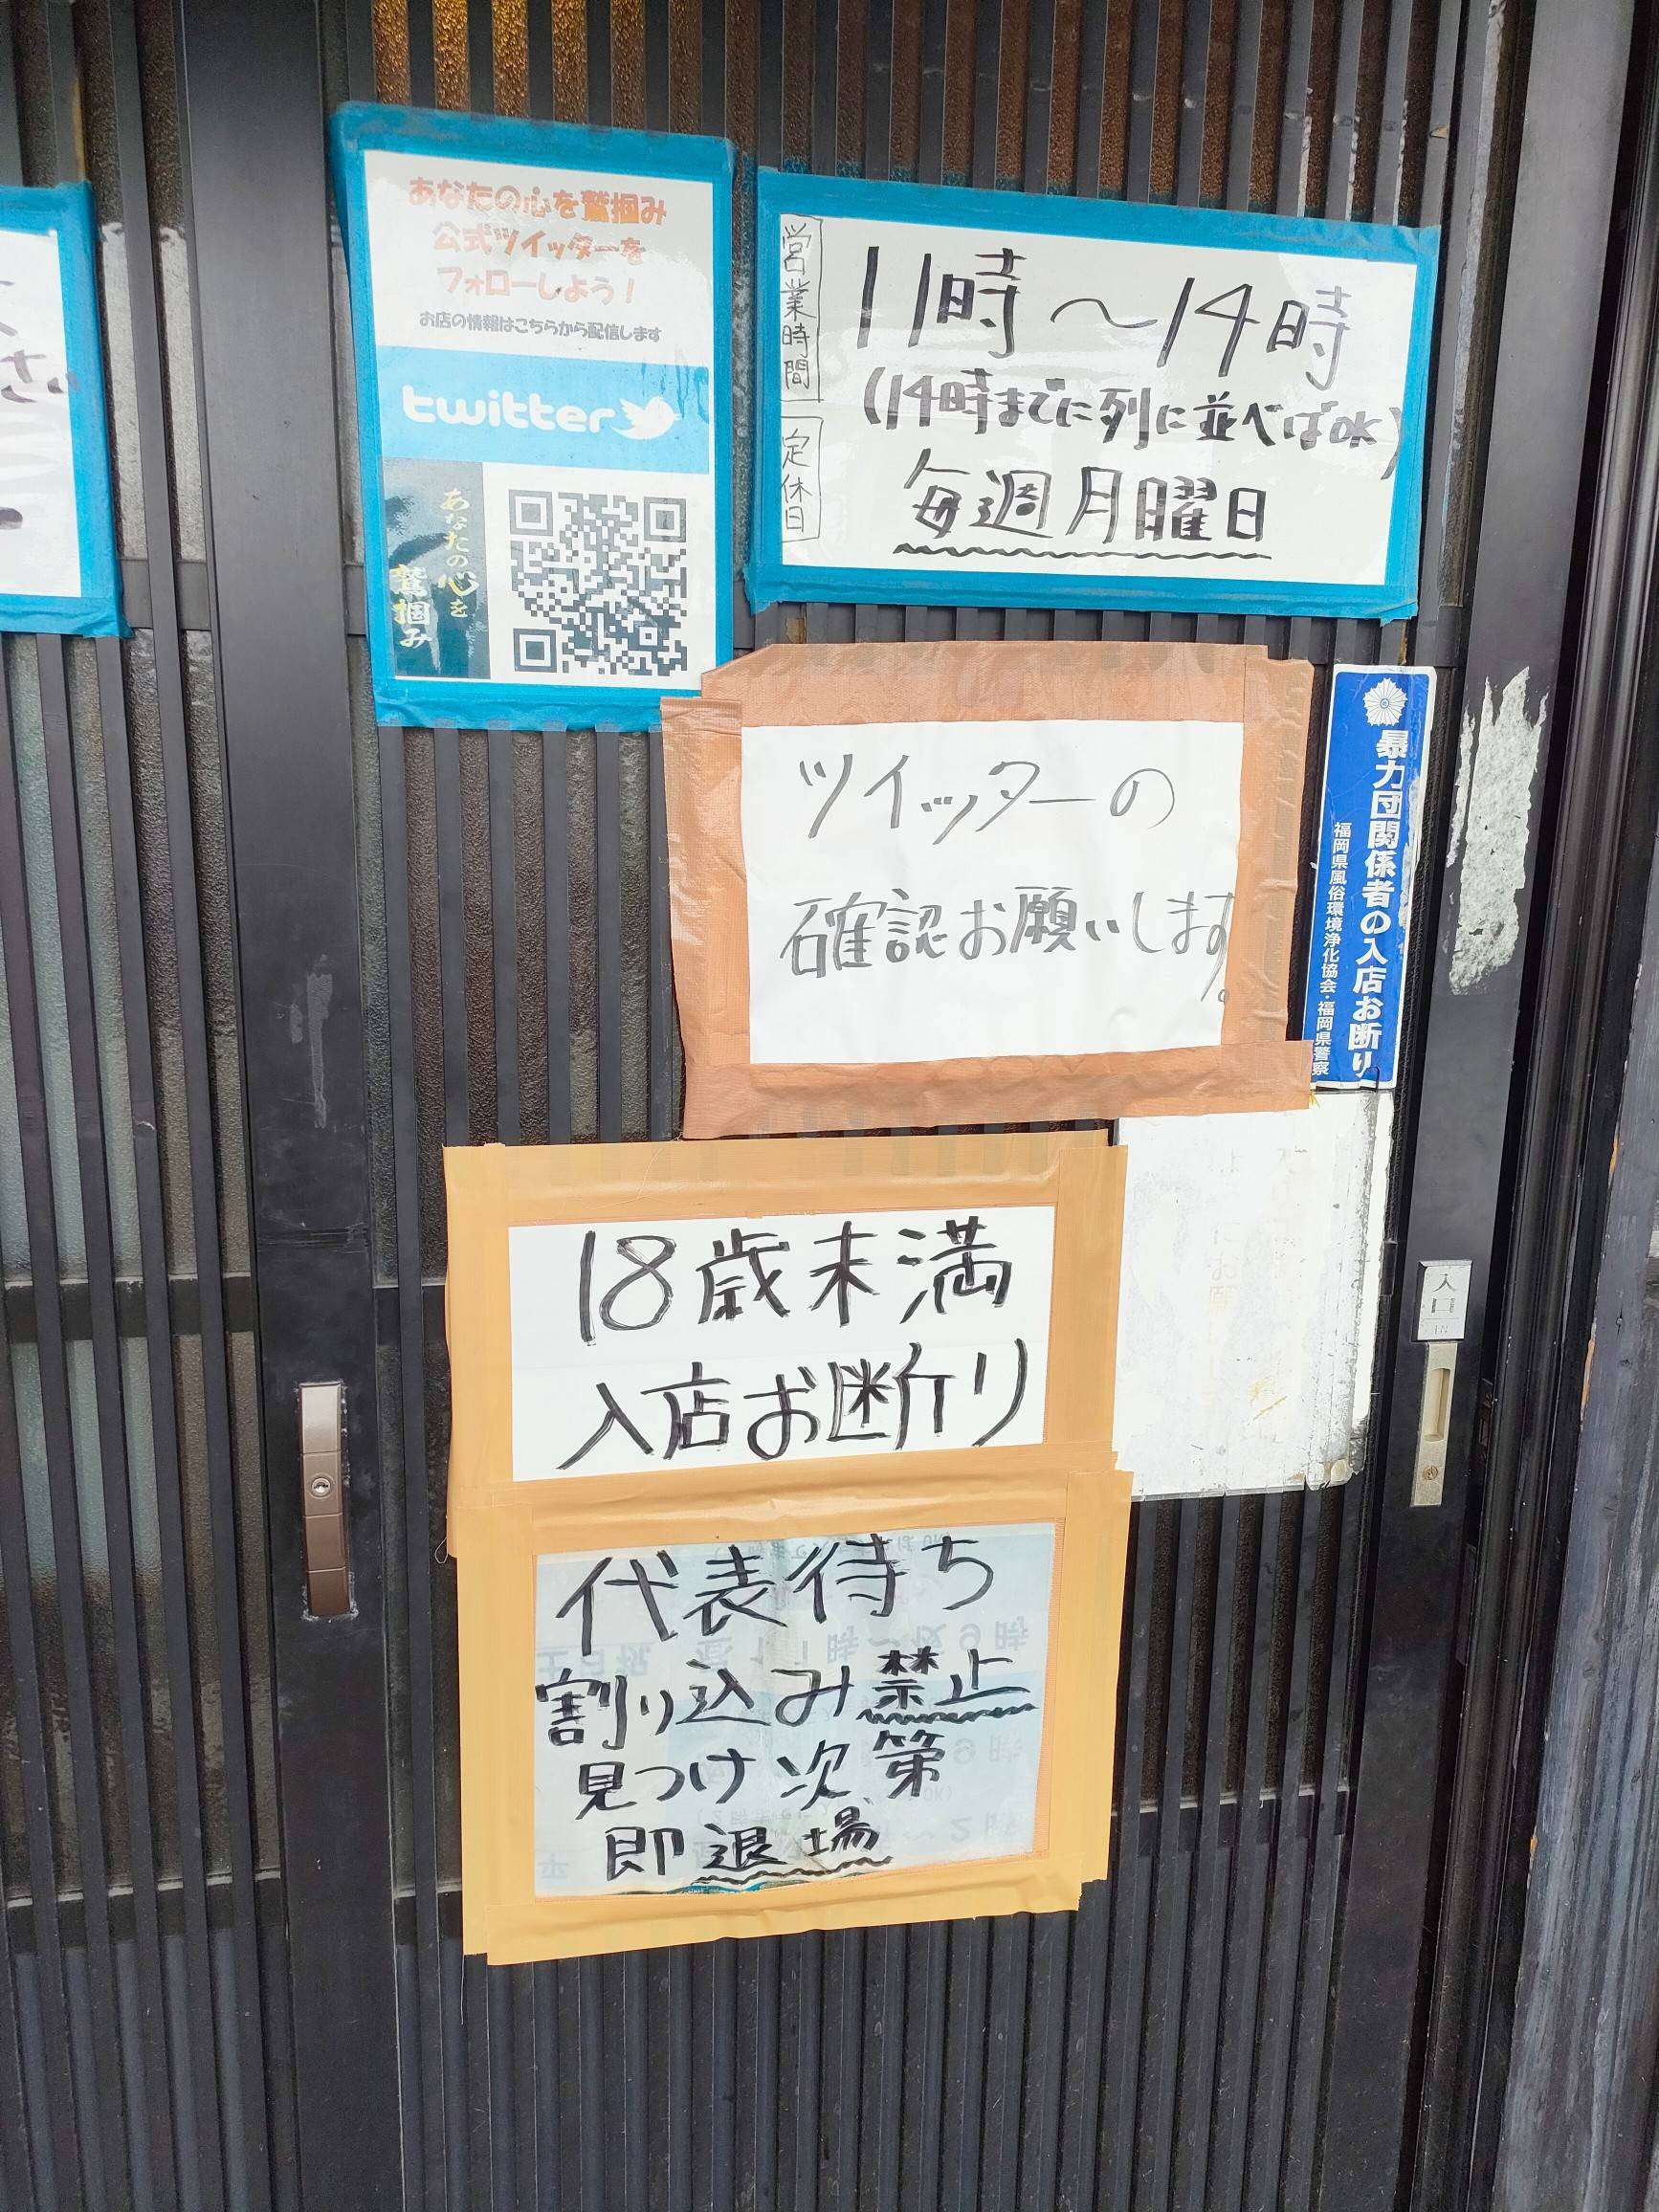 あなたの心を鷲掴み
公式ツイッターを
フォローしよう！
お店の情報はこちらから配信します
twitter
あなたの心を
鷲掴み
営業時間
11時〜14時
(14時までに列に並べばOK)
定休日
毎週月曜日
ツイッターの
確認お願いします。
暴力団関係者の入店お断り
福岡県風俗環境浄化協会・福岡県警察
入口
IN
18歳未満
入店お断り
代表待ち
割り込み禁止
見つけ次第
即退場